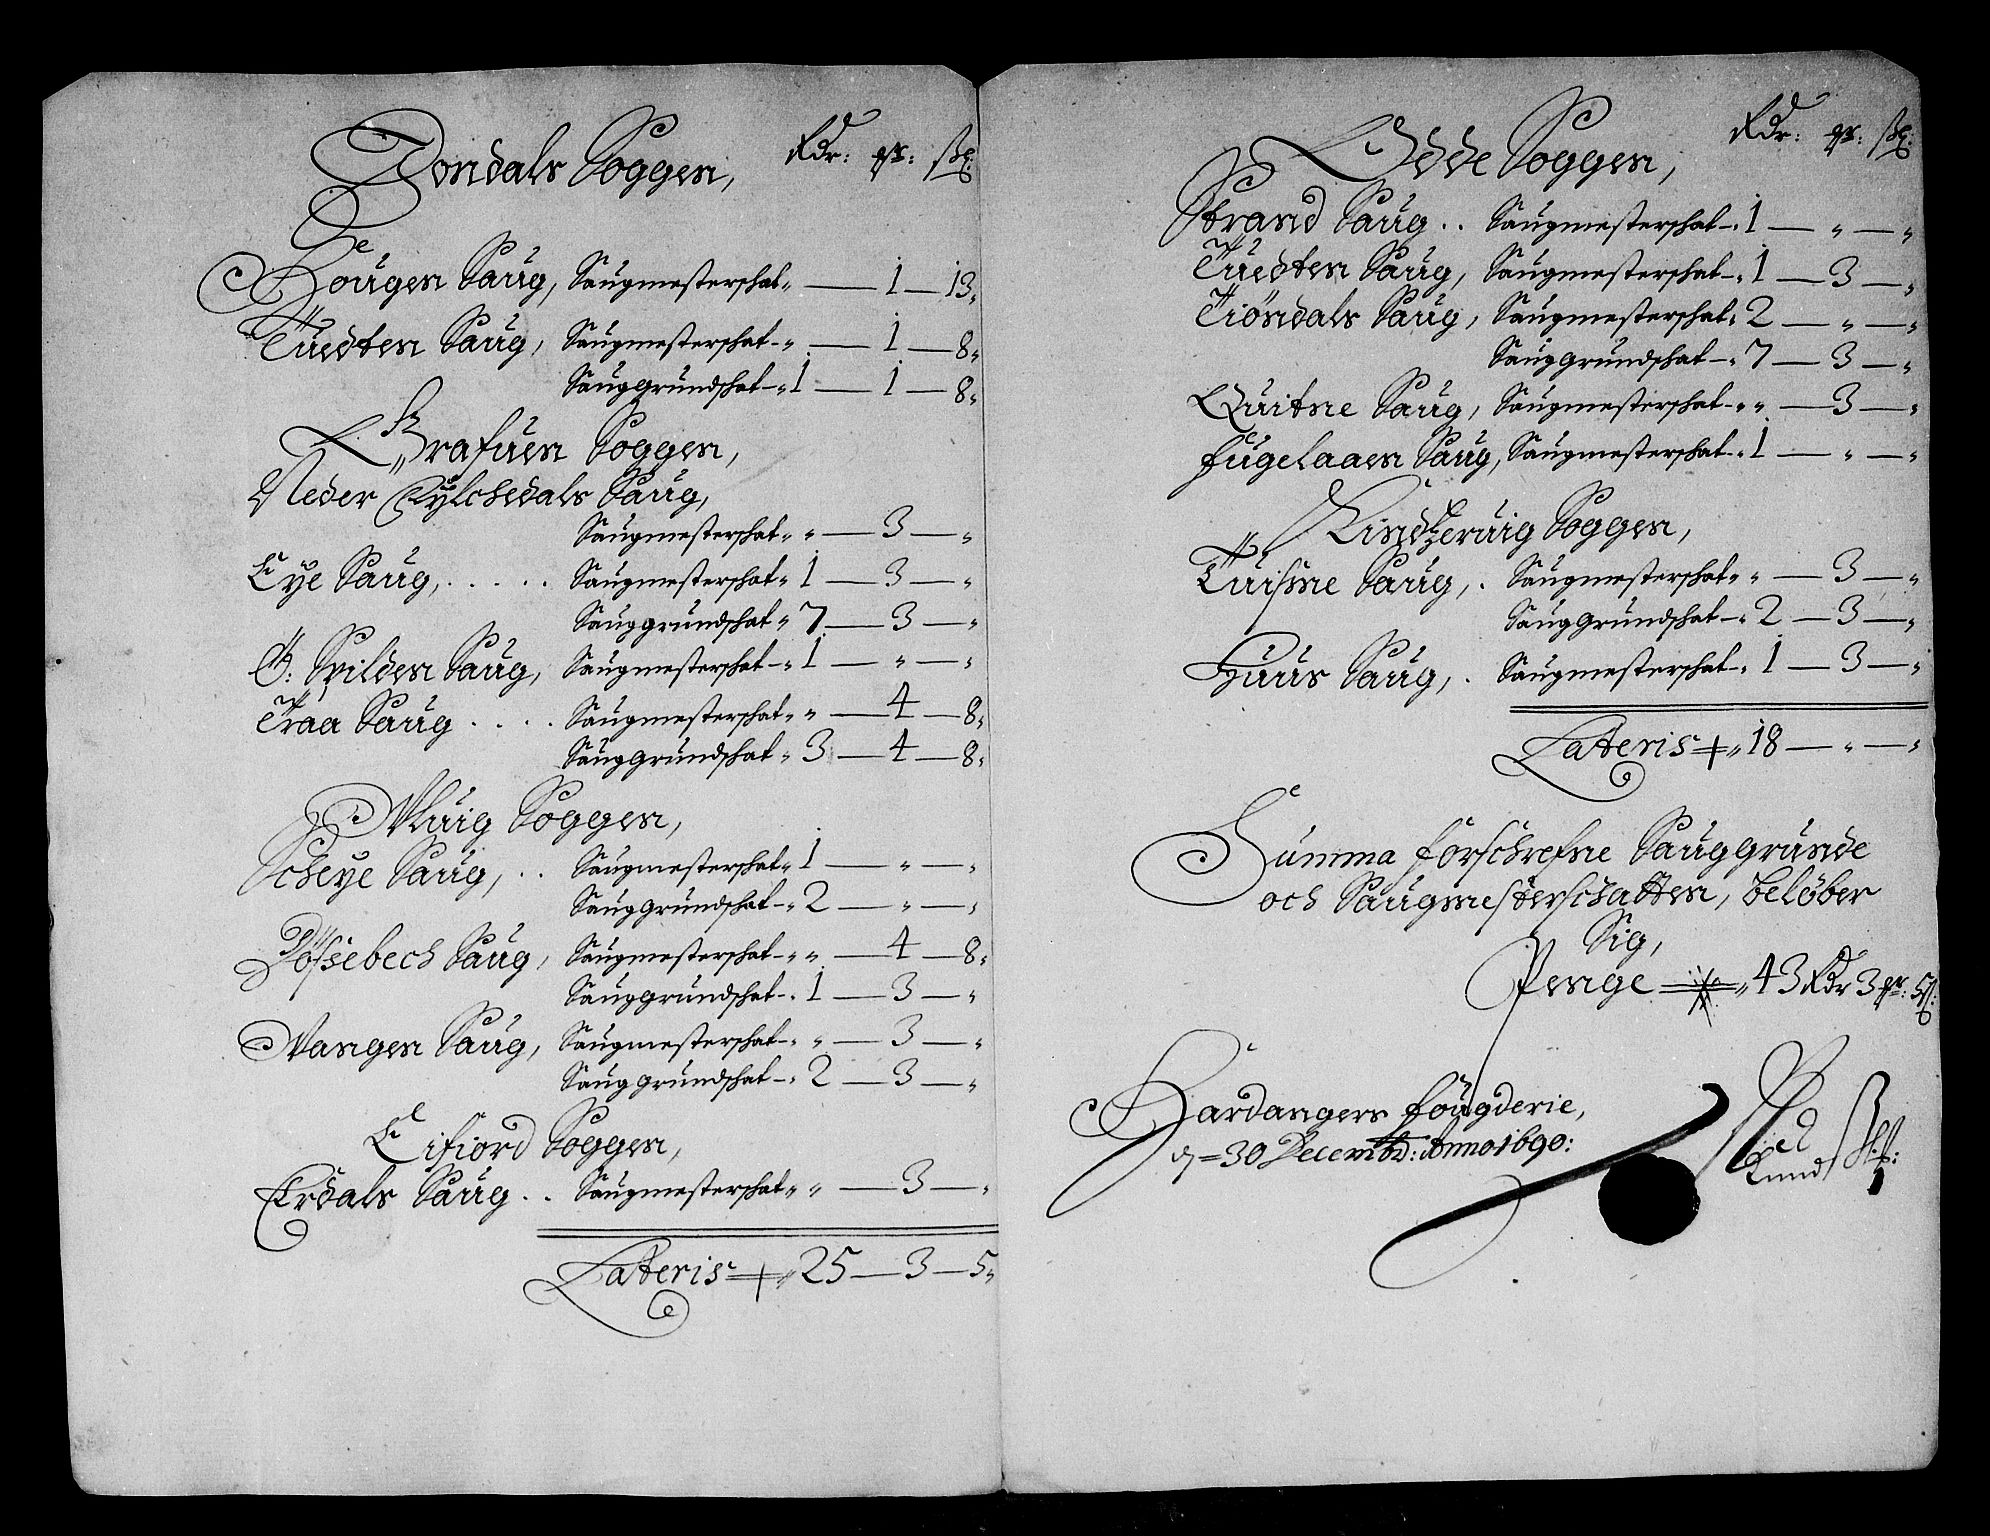 Jondals Soggen, Rdr: ort: sk:
Hougen Saug, Saugmesterschat „ — 1 — 13„
Tuedten Saug, Saugmesterschat — „ — 1 — 8„
Sauggrundschat — „ 1 — 1 — 8„
Grafuen Soggen,
Neder Sylchedals Saug,
Saugmesterschat „ „ — 3 — „
Eye Saug, . . . . . Saugmesterschat „ 1 — 3 — „
Sauggrundschat „ 7 — 3 — „
O: Spilden Saug, Saugmesterschat — „ 1 — „ — „
Traa Saug . . . . Saugmesterschat „ „ — 4 — 8„
Sauggrundschat „ 3 — 4 — 8„
Vluig Soggen,
Scheye Saug, . . Saugmesterschat „ 1 — „ — „
Sauggrundschat — „ 2 — „ — „
Døssebech Saug, Saugmesterschat — „ „ — 4 — 8„
Sauggrundschat — „ 1 — 3 — „
Vangen Saug, Saugmesterschat — „ „ — 3 — „
Sauggrundschat — „ 2 — 3 — „
Eifiord Soggen,
Erdals Saug . . Saugmesterschat „ „ — 3 — „
Lateris „ 25 — 3 — 5„
Odde Soggen, Rdr: ort: sk:
Strand Saug . . Saugmesterschat — „ 1 — „ — „
Tuedten Saug, Saugmesterschat — „ 1 — 3 — „
Tiøndals Saug, Saugmesterschat „ 2 — „ — „
Sauggrundschat — „ 7 — 3 — „
Quitne Saug, Saugmesterschat — „ „ — 3 — „
Fugelaaen Saug, Saugmesterschat — „ 1 — „ — „
Kindzeruig Soggen,
Tuisme Saug, . Saugmesterschat „ „ — 3 — „
Sauggrundschat — „ 2 — 3 — „
Huus Saug, . Saugmesterschat — „ 1 — 3 — „
Lateris „ 18 — „ — „
Summa forschrefne Sauggrunde
och Saugmesterschatten, beløber
Sig,
Penge „ 43 Rdr 3 ort: 5 s:
Hardangers fougderie,
d = 30 Decembr: Anno 1690: